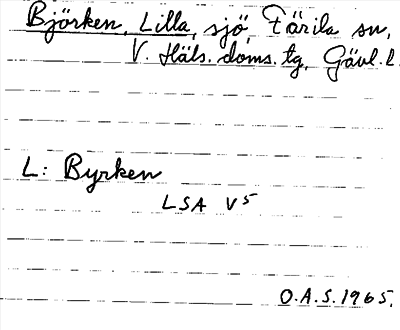 Björken, Lilla, sjö, Färila sn,
V. Häls. doms. tg, Gävl. l.
L: Byrken
LSA V 5
O.A.S. 1965.